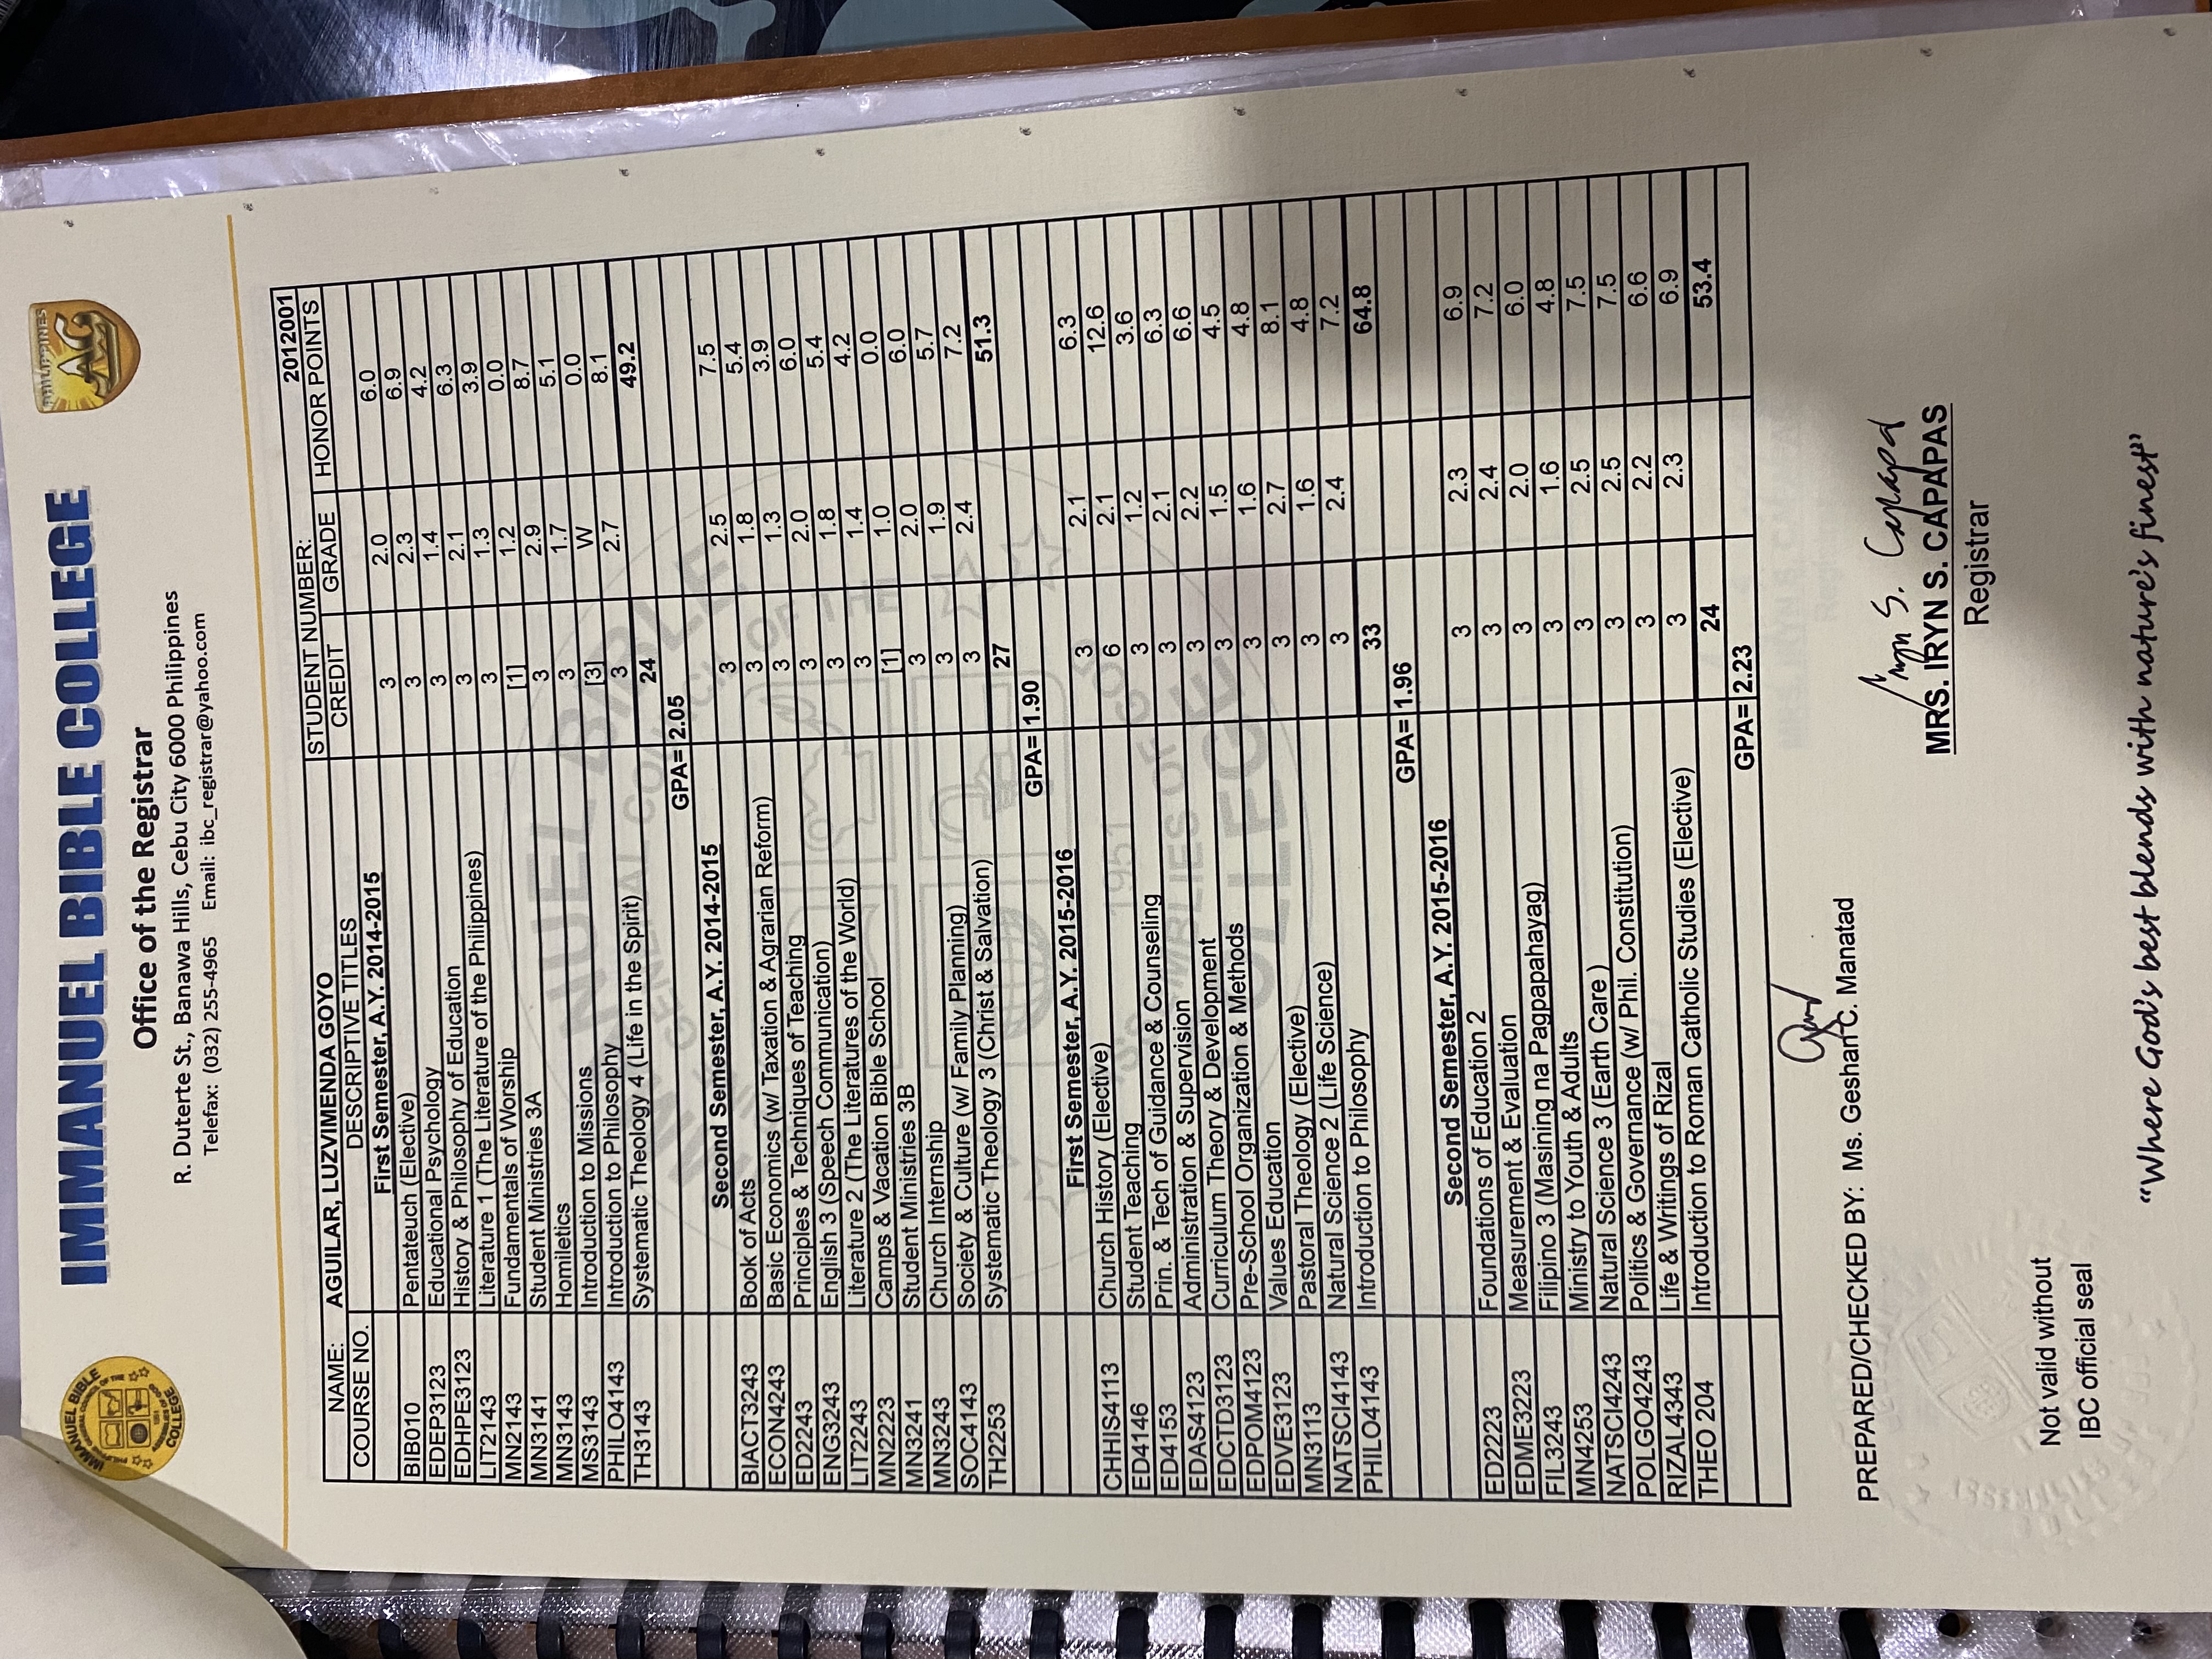 IMMANUEL BIBLE COLLEGE
Office of the Registrar
R. Duterte St., Banawa Hills, Cebu City 6000 Philippines
Telefax: (032) 255-4965 Email: ibc_registrar@yahoo.com
NAME: AGUILAR, LUZVIMENDA GOYO STUDENT NUMBER: 2012001
COURSE NO. DESCRIPTIVE TITLES CREDIT GRADE HONOR POINTS
First Semester, A.Y. 2014-2015
BIB010 Pentateuch (Elective) 3 2.0 6.0
EDEP3123 Educational Psychology 3 2.3 6.9
EDHPE3123 History & Philosophy of Education 3 1.4 4.2
LIT2143 Literature 1 (The Literature of the Philippines) 3 2.1 6.3
MN2143 Fundamentals of Worship 3 1.3 3.9
MN3141 Student Ministries 3A [1] 1.2 0.0
MN3143 Homiletics 3 2.9 8.7
MS3143 Introduction to Missions 3 1.7 5.1
PHILO4143 Introduction to Philosophy [3] W 0.0
TH3143 Systematic Theology 4 (Life in the Spirit) 3 2.7 8.1
24 49.2
GPA= 2.05
Second Semester, A.Y. 2014-2015
BIACT3243 Book of Acts 3 2.5 7.5
ECON4243 Basic Economics (w/ Taxation & Agrarian Reform) 3 1.8 5.4
ED2243 Principles & Techniques of Teaching 3 1.3 3.9
ENG3243 English 3 (Speech Communication) 3 2.0 6.0
LIT2243 Literature 2 (The Literatures of the World) 3 1.8 5.4
MN2223 Camps & Vacation Bible School 3 1.4 4.2
MN3241 Student Ministries 3B [1] 1.0 0.0
MN3243 Church Internship 3 2.0 6.0
SOC4143 Society & Culture (w/ Family Planning) 3 1.9 5.7
TH2253 Systematic Theology 3 (Christ & Salvation) 3 2.4 7.2
27 51.3
GPA= 1.90
First Semester, A.Y. 2015-2016
CHHIS4113 Church History (Elective) 3 2.1 6.3
ED4146 Student Teaching 6 2.1 12.6
ED4153 Prin. & Tech of Guidance & Counseling 3 1.2 3.6
EDAS4123 Administration & Supervision 3 2.1 6.3
EDCTD3123 Curriculum Theory & Development 3 2.2 6.6
EDPOM4123 Pre-School Organization & Methods 3 1.5 4.5
EDVE3123 Values Education 3 1.6 4.8
MN3113 Pastoral Theology (Elective) 3 2.7 8.1
NATSCI4143 Natural Science 2 (Life Science) 3 1.6 4.8
PHILO4143 Introduction to Philosophy 3 2.4 7.2
33 64.8
GPA= 1.96
Second Semester, A.Y. 2015-2016
ED2223 Foundations of Education 2 3 2.3 6.9
EDME3223 Measurement & Evaluation 3 2.4 7.2
FIL3243 Filipino 3 (Masining na Pagpapahayag) 3 2.0 6.0
MN4253 Ministry to Youth & Adults 3 1.6 4.8
NATSCI4243 Natural Science 3 (Earth Care ) 3 2.5 7.5
POLGO4243 Politics & Governance (w/ Phil. Constitution) 3 2.5 7.5
RIZAL4343 Life & Writings of Rizal 3 2.2 6.6
THEO 204 Introduction to Roman Catholic Studies (Elective) 3 2.3 6.9
24 53.4
GPA= 2.23
PREPARED/CHECKED BY: Ms. Geshan C. Manatad
MRS. IRYN S. CAPAPAS
Registrar
Not valid without
IBC official seal
“Where God's best blends with nature's finest”